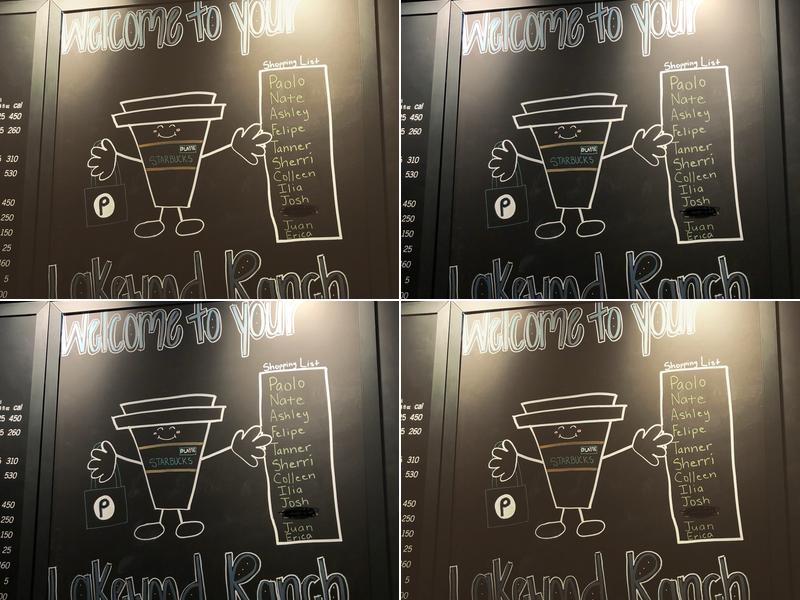 Welcome to your
Shopping List
Paolo
Nate
Ashley
Felipe
Tanner
Sherri
Colleen
Ilia
Josh
Juan
Erica
BLATTE
STARBUCKS
P
Lakewood Ranch
cal
25 450
5 260
310
530
450
250
150
25
60
5
Welcome to your
Shopping List
Paolo
Nate
Ashley
Felipe
Tanner
Sherri
Colleen
Ilia
Josh
Juan
Erica
STARBUCKS
P
Lakewood Ranch
cal
25 450
5 260
310
530
450
250
150
25
60
5
Welcome to your
Shopping List
Paolo
Nate
Ashley
Felipe
Tanner
Sherri
Colleen
Ilia
Josh
Juan
Erica
STARBUCKS
P
Lakewood Ranch
cal
25 450
5 260
310
530
450
250
150
25
60
5
Welcome to your
Shopping List
Paolo
Nate
Ashley
Felipe
Tanner
Sherri
Colleen
Ilia
Josh
Juan
Erica
STARBUCKS
P
Lakewood Ranch
cal
25 450
5 260
310
530
450
250
150
25
60
5